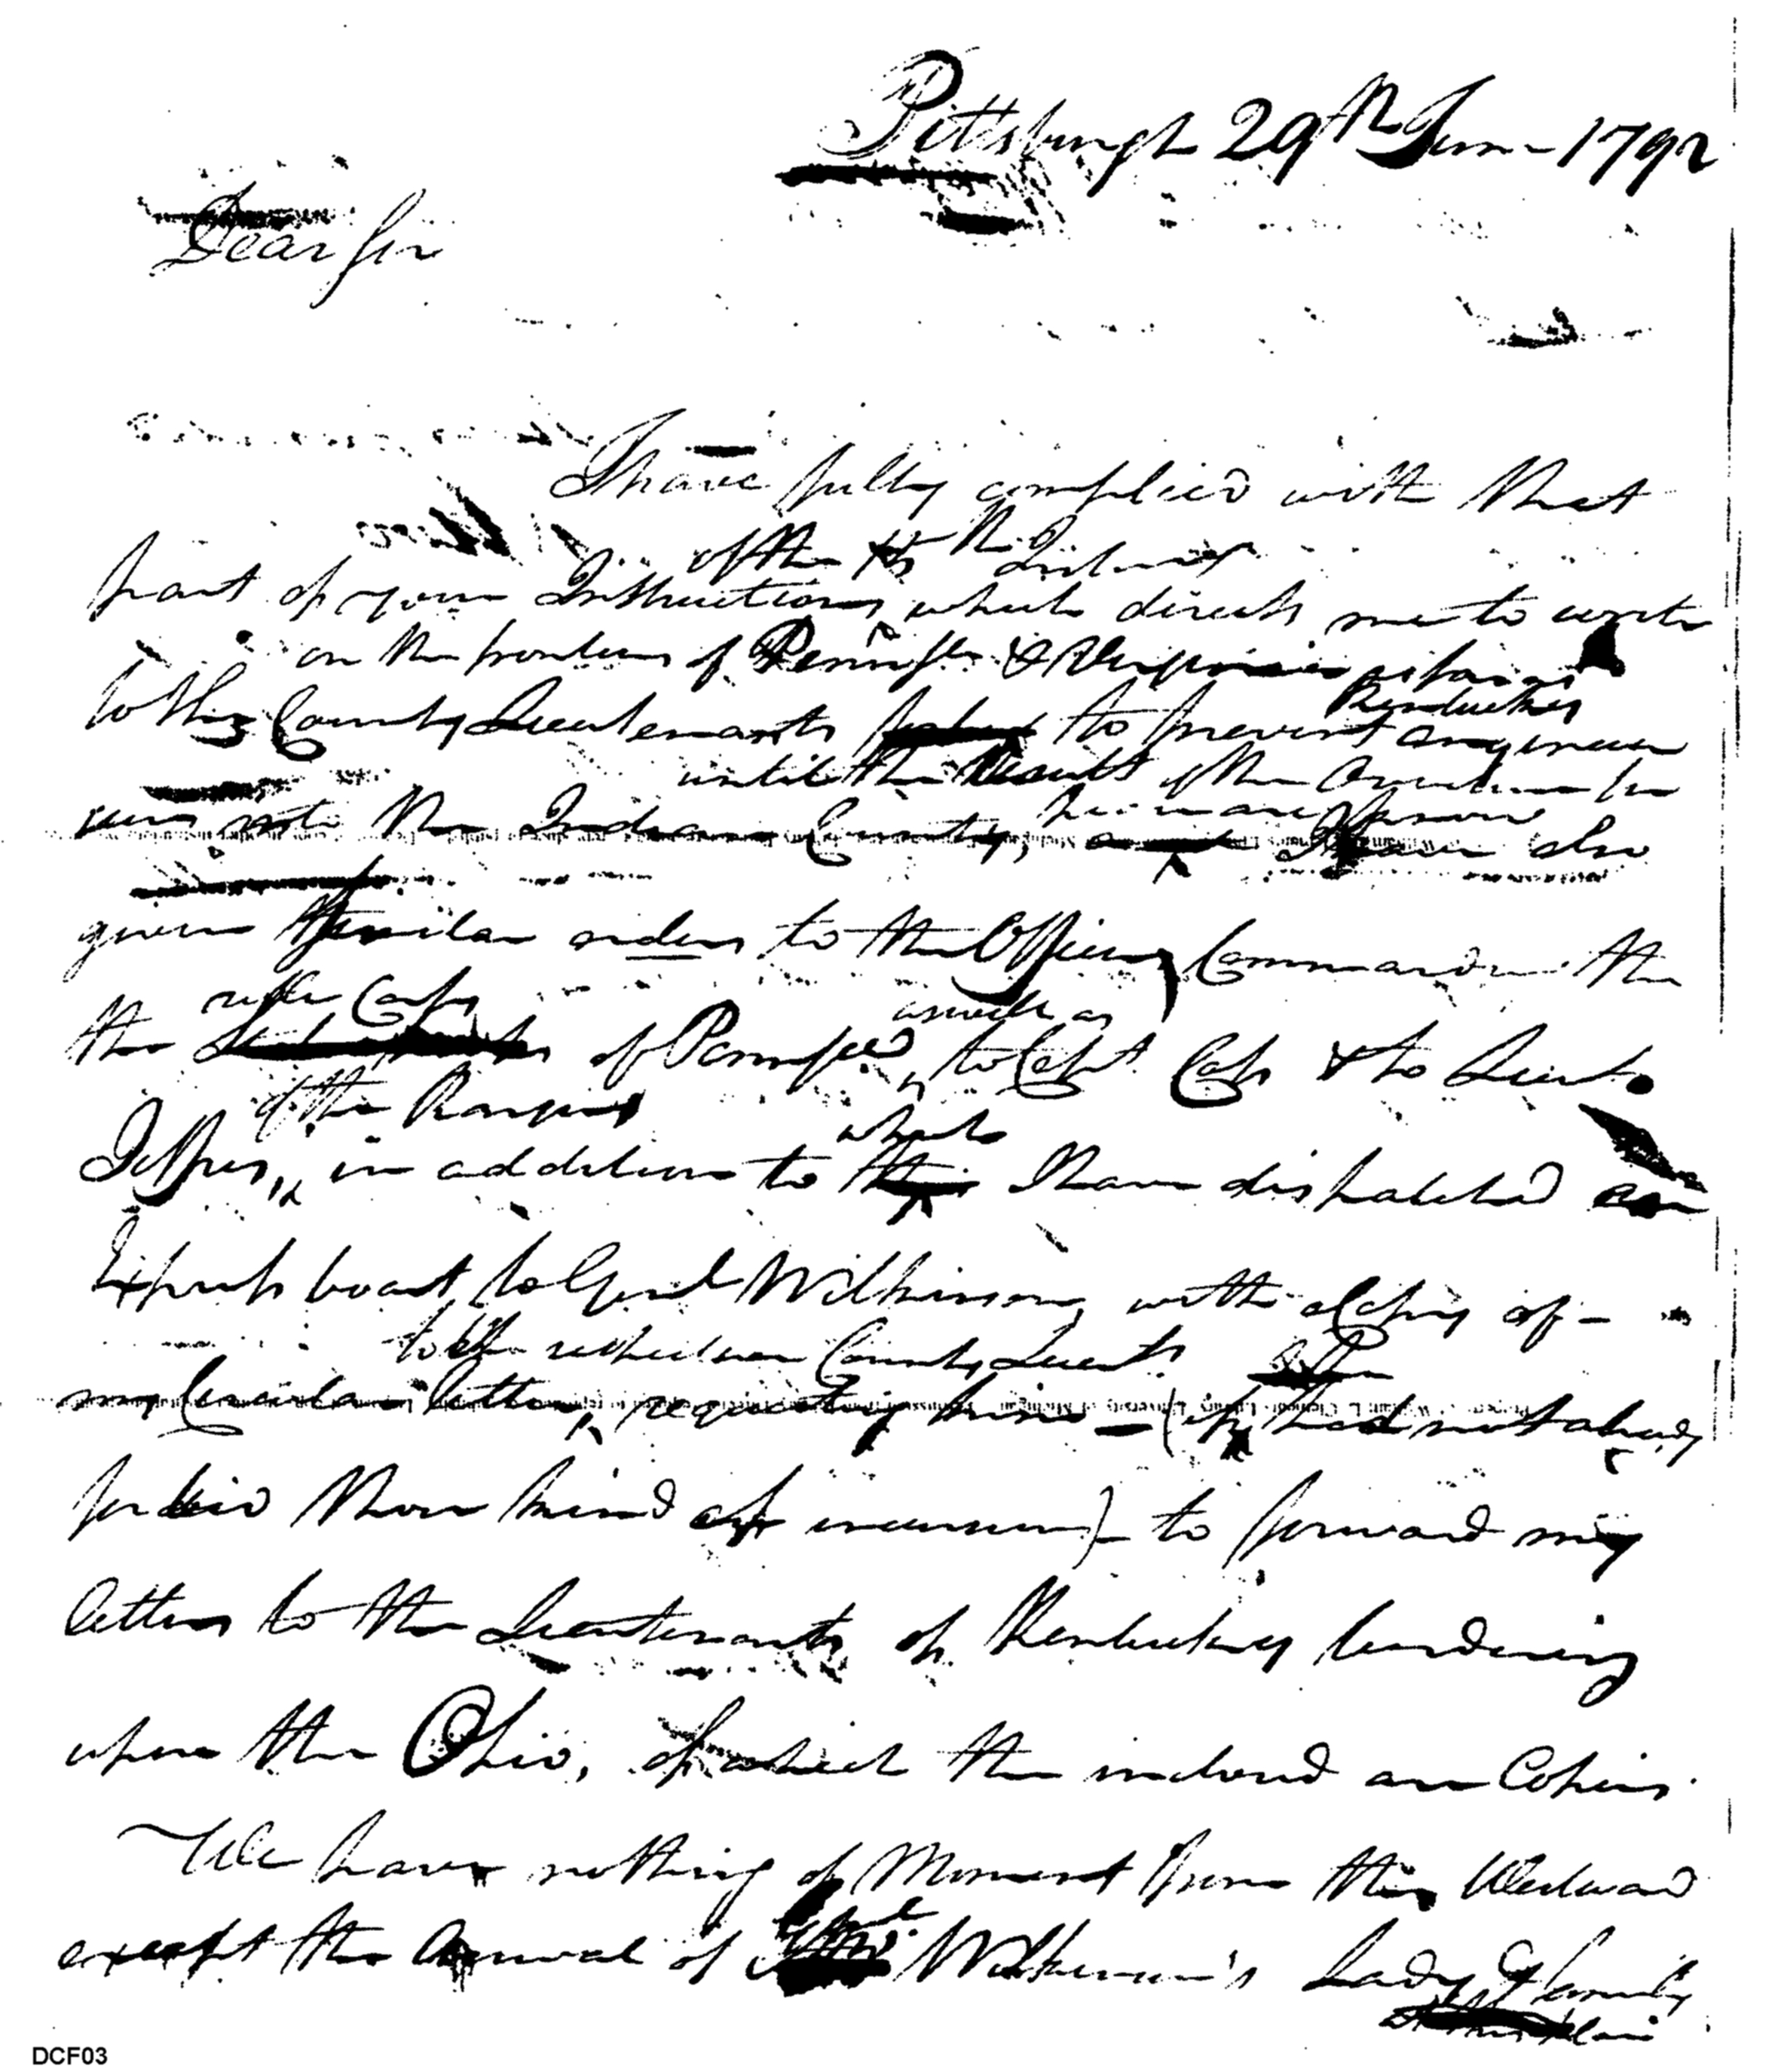 Pittsburgh 29th June 1792
Dear Sir
I have fully complied with that
of the Instant
part of your Instructions, which directs me to write
on the frontiers of Pennsa & Virginia
Kentuckey
to the County Lieutenants to prevent any incur
until the Result of the
sions into the Indian Country, I have also
given similar orders to the Officers Commanding the
rifle Corps as well as
the of Pennsa to Capt Cass & to Lieut
of the Rangers what
Jeffers, in addition to I have dispatched an
Express boat to Genl Wilkinson, with Copies of
to the County Lieuts
my Circular letter, requesting him - (if had not already
forbid those kind of incursions) to forward my
letters to the Lieutenants of Kentuckey bordering
upon the Ohio, of which the inclosed are Copies.
We have nothing of Moment from the Westward
except the arrival of Wilkinson's Lady & family
DCF03